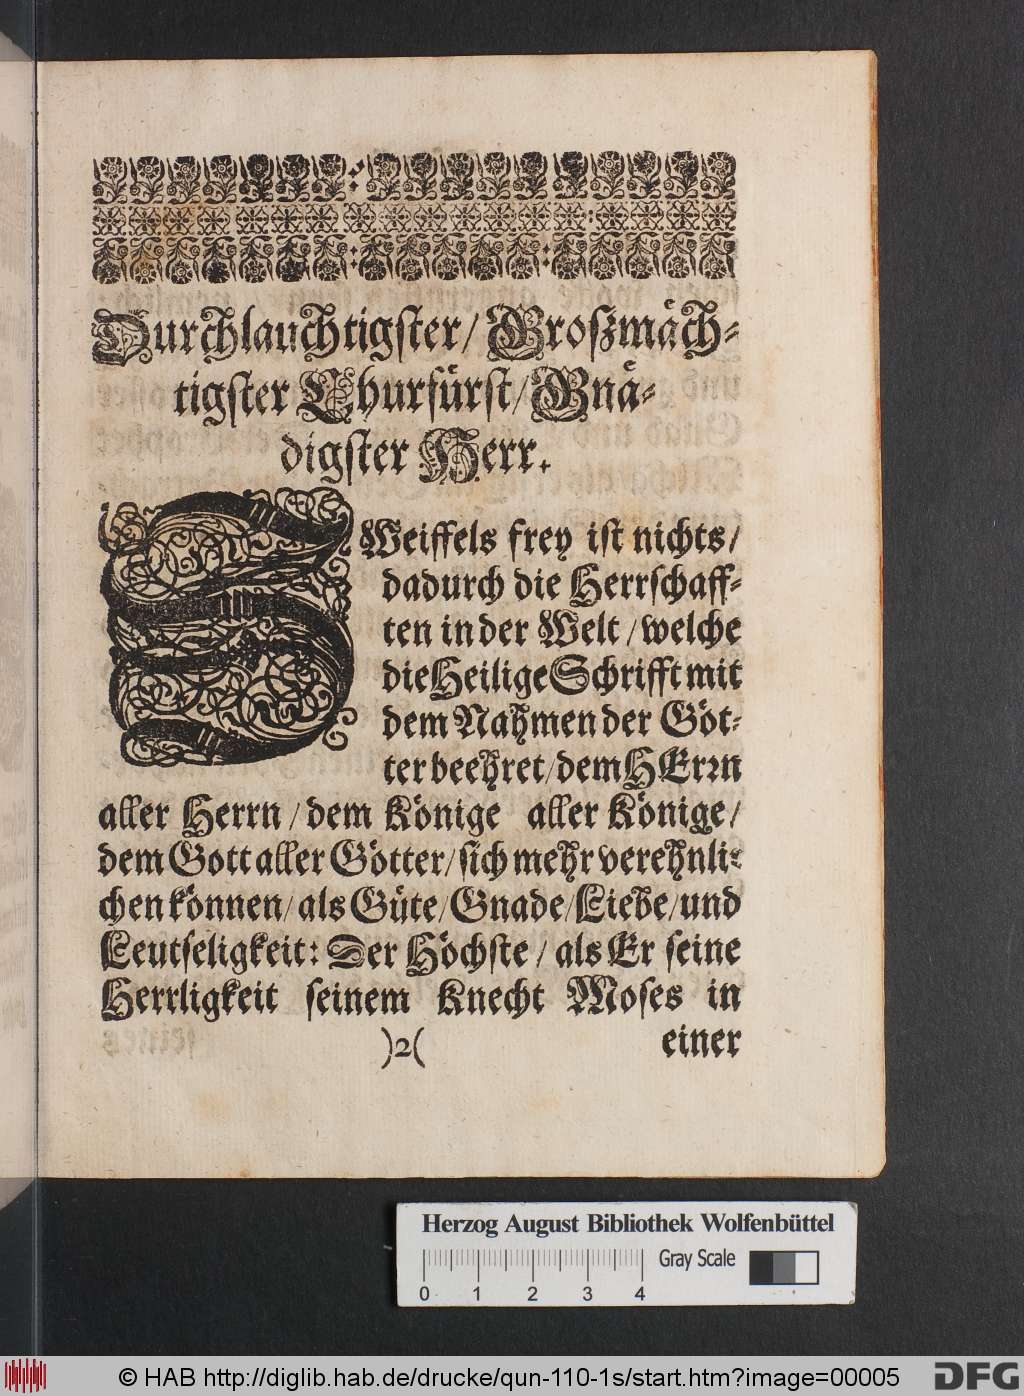 Durchlauchtigster/ Großmäch-
tigster Churfürst/ Gnä-
digster Herr.
ZWeiffels frey ist nichts/
dadurch die Herrschaff-
ten in der Welt/ welche
die Heilige Schrifft mit
dem Nahmen der Göt-
ter beehret/ dem HErrn
aller Herrn/ dem Könige aller Könige/
dem Gott aller Götter/ sich mehr verehnli-
chen können/ als Güte/ Gnade/ Liebe/ und
Leutseligkeit: Der Höchste/ als Er seine
Herrligkeit seinem Knecht Moses in
)2( einer
Herzog August Bibliothek Wolfenbüttel
Gray Scale
0 1 2 3 4
© HAB http://diglib.hab.de/drucke/qun-110-1s/start.htm?image=00005
DFG